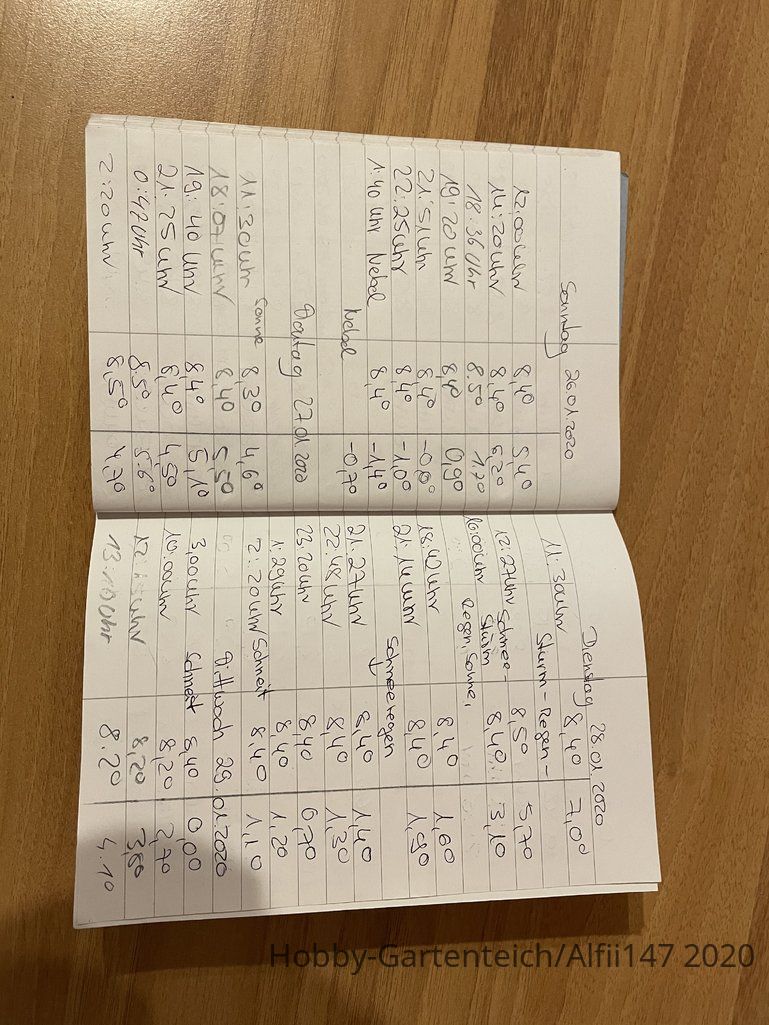 Sonntag 26.01.2020
12:00 Uhr 8,4° 5,4°
14:20 Uhr 8,4° 6,2°
18:36 Uhr 8.5° 1,7°
19:20 Uhr 8,4° 0,9°
21:51 Uhr 8,4°
22:25 Uhr 8,4° -1,0°
1:40 Uhr Nebel 8,4° -1,4°
Nebel -0,7°
Montag 27.01.2020
11:30 Uhr Sonne 8,3° 4,6°
18:07 Uhr 8,4° 5,5°
19:40 Uhr 8,4° 5,1°
21:25 Uhr 8,4° 4,5°
0:42 Uhr 8.5° 5.6°
2:20 Uhr 8,5° 4,7°
Dienstag 28.01.2020
11:30 Uhr 8,4° 7,0°
Sturm-Regen-
12:27 Uhr Schnee- 8,5° 5,7°
Sturm 8,4° 3,1°
16:00 Uhr Regen, Sonne,
18:42 Uhr 8,4° 1,6°
21:14 Uhr 8,4° 1,5°
Schneeregen
21:27 Uhr 8,4° 1,4°
22:48 Uhr 8,4° 1,3°
23:20 Uhr 8,4° 0,7°
1:29 Uhr 8,4° 1,2°
2:20 Uhr Schneit 8,4° 1,1°
Mittwoch 29.01.2020
3,00 Uhr Schneit 8,4° 0,0°
10:00 Uhr 8,2° 2,7°
12:15 Uhr 8,2° 3,8°
13:10 Uhr 8.2° 4.1°
Hobby-Gartenteich/Alfii147 2020